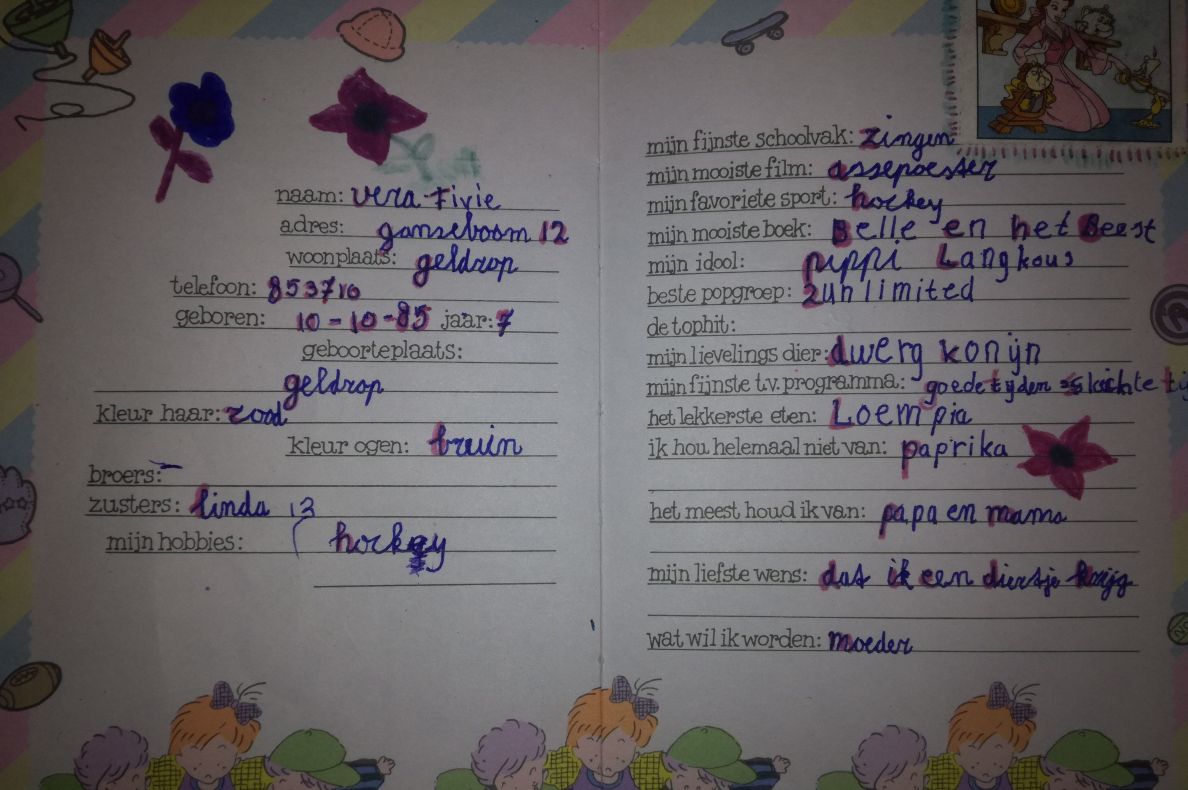 naam: vera Fixie
adres: ganseboom 12
woonplaats: geldrop
telefoon: 853710
geboren: 10-10-85 jaar: 7
geboorteplaats:
geldrop
kleur haar: rood
kleur ogen: bruin
broers: -
zusters: linda 13
mijn hobbies: hockey
mijn fijnste schoolvak: zingen
mijn mooiste film: assepoester
mijn favoriete sport: hockey
mijn mooiste boek: Belle en het Beest
mijn idool: pippi Langkous
beste popgroep: 2unlimited
de tophit:
mijn lievelings dier: dwerg konijn
mijn fijnste t.v. programma: goede tijden slechte tij
het lekkerste eten: Loempia
ik hou helemaal niet van: paprika
het meest houd ik van: papa en mama
mijn liefste wens: dat ik een diertje krijg
wat wil ik worden: moeder